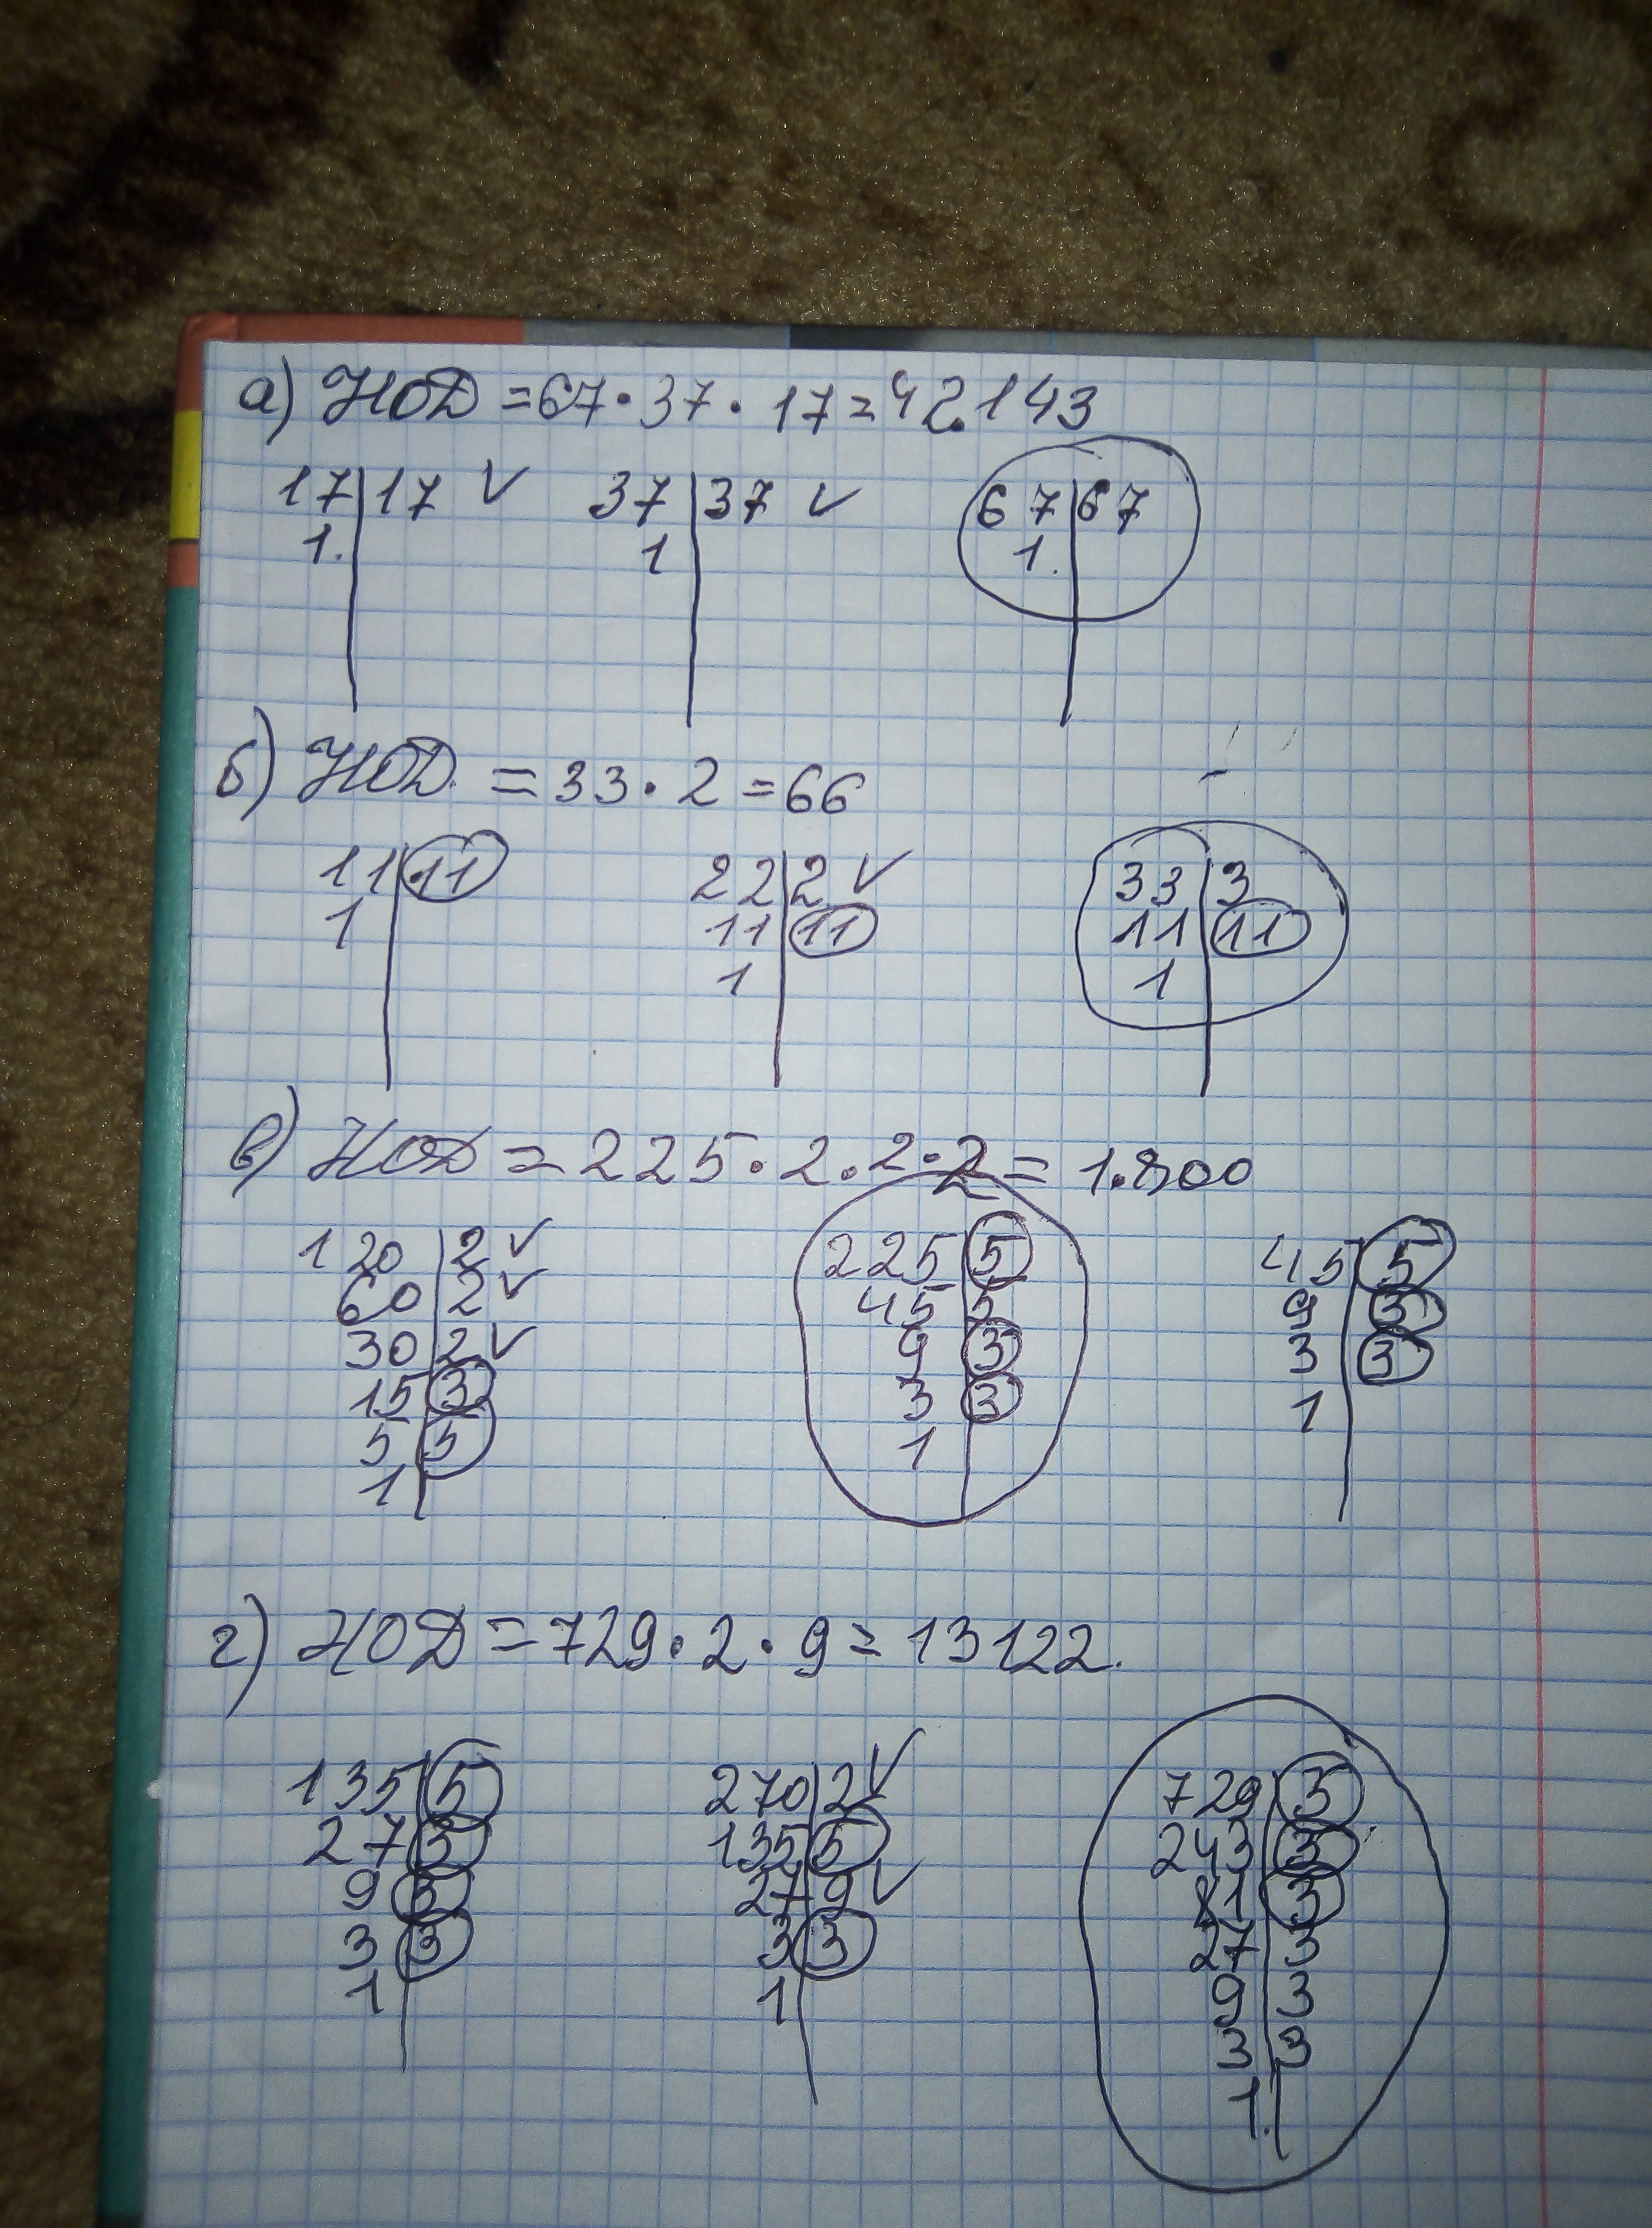 а) НОД = 67 · 37 · 17 = 42.143
17 | 17 ✓ 37 | 37 ✓ 67 | 67
1. 1 1.
б) НОД. = 33 · 2 = 66
11 | 11 22 | 2 ✓ 33 | 3
1 11 | 11 11 | 11
1 1
в) НОД = 225 · 2 · 2 · 2 = 1.800
120 | 2 ✓ 225 | 5 45 | 5
60 | 2 ✓ 45 | 5 9 | 3
30 | 2 ✓ 9 | 3 3 | 3
15 | 3 3 | 3 1
5 | 5 1
1
г) НОД = 729 · 2 · 9 = 13122.
135 | 5 270 | 2 ✓ 729 | 3
27 | 3 135 | 5 243 | 3
9 | 3 27 | 9 ✓ 81 | 3
3 | 3 3 | 3 27 | 3
1 1 9 | 3
3 | 3
1.